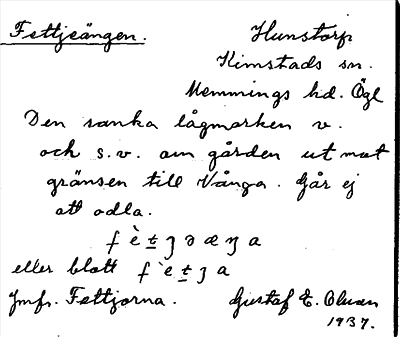 Fettjeängen. Hunstorp
Kimstads sn.
Memmings hd. Ögl
Den sanka lågmarken v.
och s.v. om gården ut mot
gränsen till Vånga. Går ej
att odla.
f è t ʒ ə æ ŋ a
eller blott f ̀e t ʒ a
Jmfr. Fettjorna. Gustaf E. Olsson
1937.